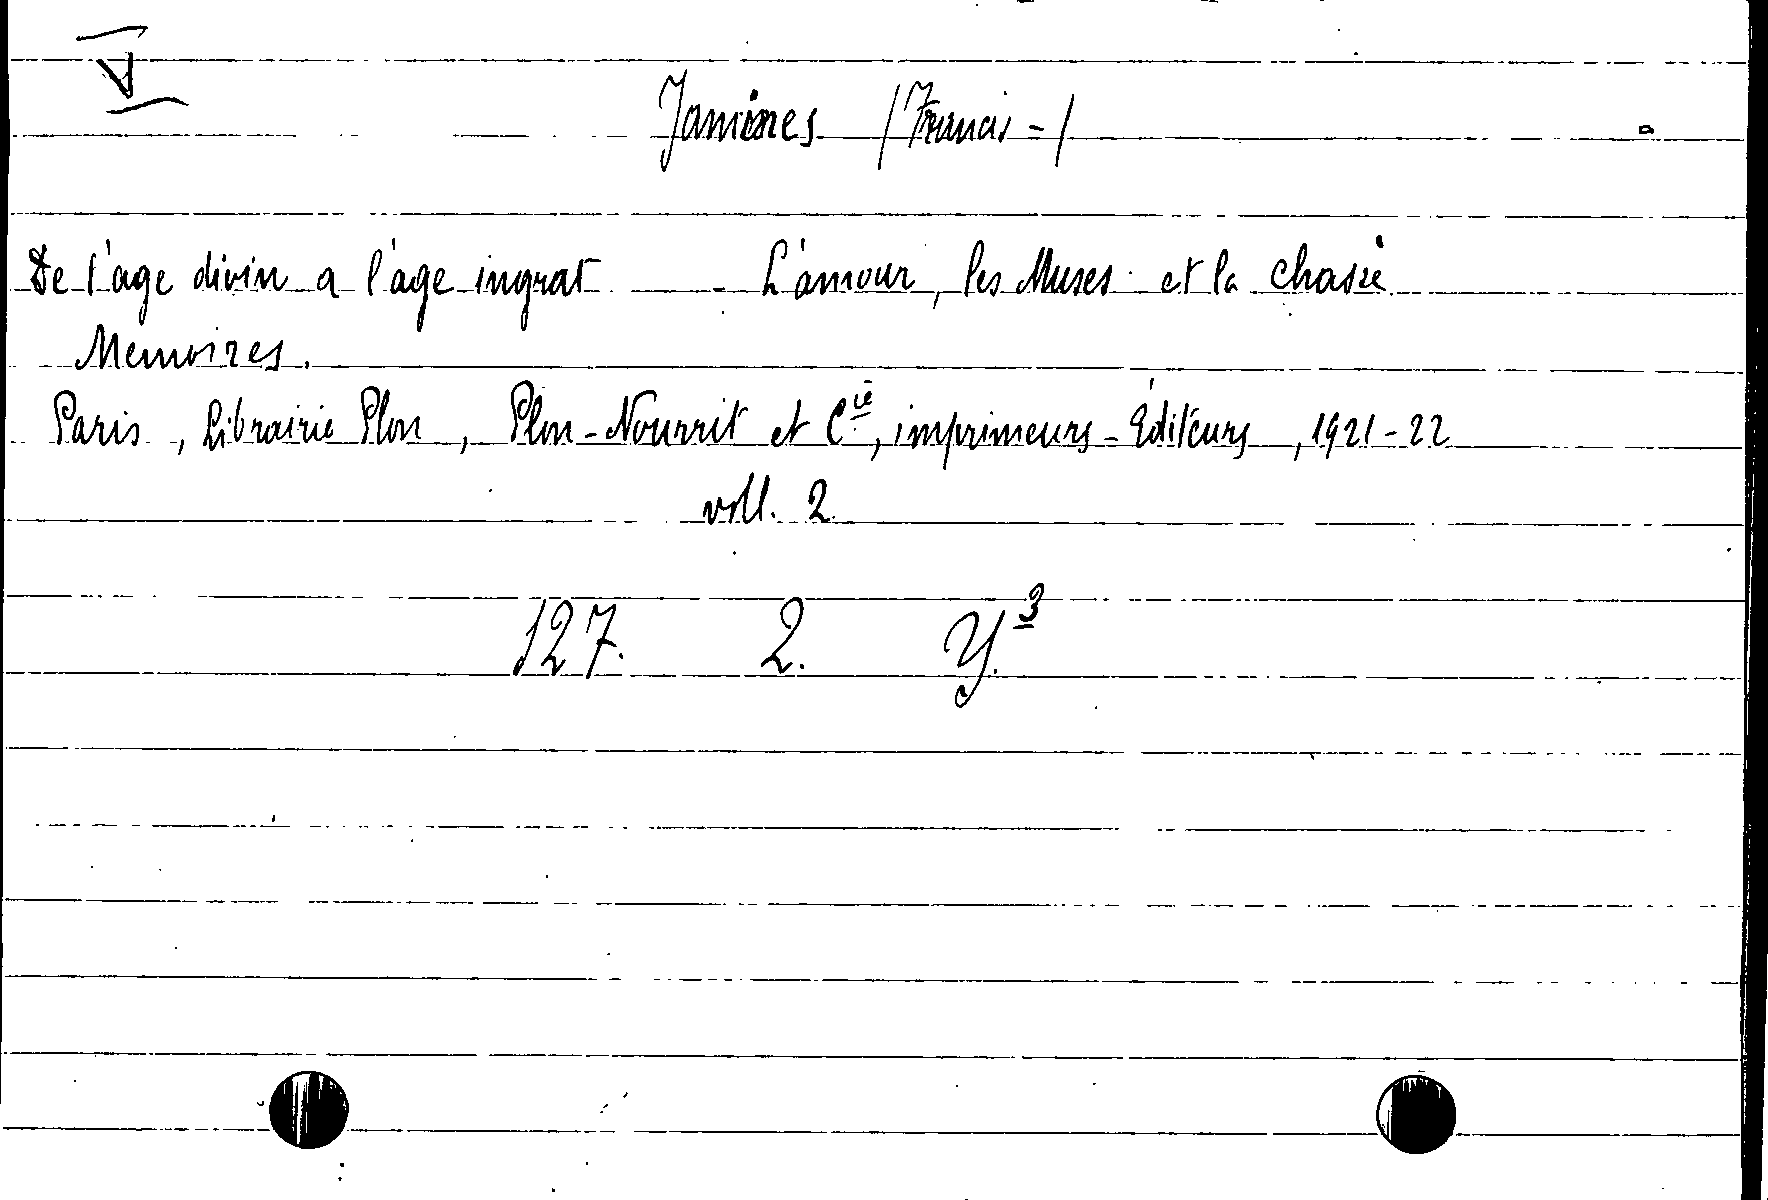 V
Jammes /Francis-/
De l'age divin a l'age ingrat - L'amour, les Muses et la chasse
Memoires.
Paris, Librairie Plon, Plon-Nourrit et Cie, imprimeurs-Éditeurs, 1921-22
voll. 2
127. 2. Y.3